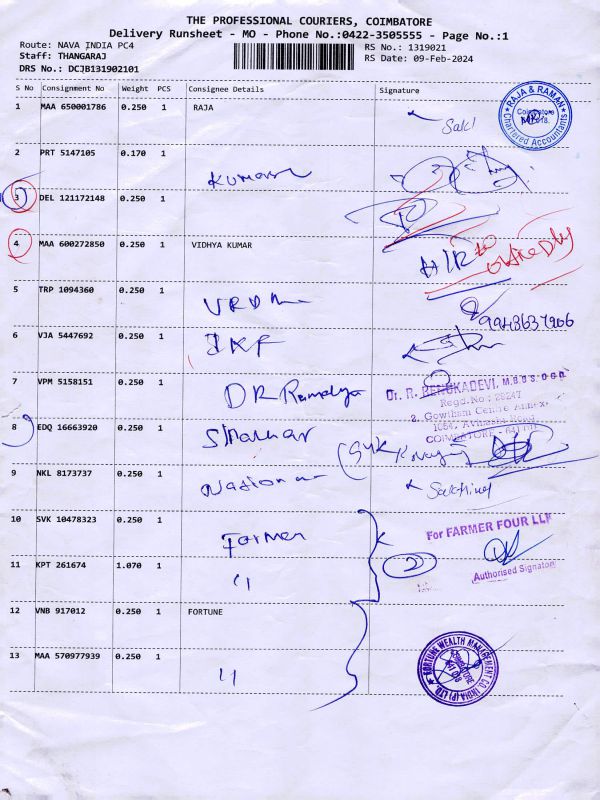 THE PROFESSIONAL COURIERS, COIMBATORE
Delivery Runsheet - MO - Phone No.:0422-3505555 - Page No.:1
Route: NAVA INDIA PC4
RS No.: 1319021
Staff: THANGARAJ
RS Date: 09-Feb-2024
DRS No.: DCJB131902101
S No Consignment No Weight PCS Consignee Details Signature
1 MAA 650001786 0.250 1 RAJA
RAJA & RAMAN
Coimbatore
Chartered Accountants
2 PRT 5147105 0.170 1
3 DEL 121172148 0.250 1
4 MAA 600272850 0.250 1 VIDHYA KUMAR
5 TRP 1094360 0.250 1
6 VJA 5447692 0.250 1
7 VPM 5158151 0.250 1 DR Ramalya
Dr. R. RENUKADEVI, M.B.B.S. D.G.O.
Regd.No.: 28247
2, Gowtham Centre Annex
1054, Avinashi Road
COIMBATORE - 641 104.
8 EDQ 16663920 0.250 1
9 NKL 8173737 0.250 1 National
10 SVK 10478323 0.250 1 Farmer
For FARMER FOUR LLP
11 KPT 261674 1.070 1 "
2
Authorised Signatory
12 VNB 917012 0.250 1 FORTUNE
13 MAA 570977939 0.250 1 "
FORTUNE WEALTH MANAGEMENT CO. INDIA (P) LTD.
COIMBATORE